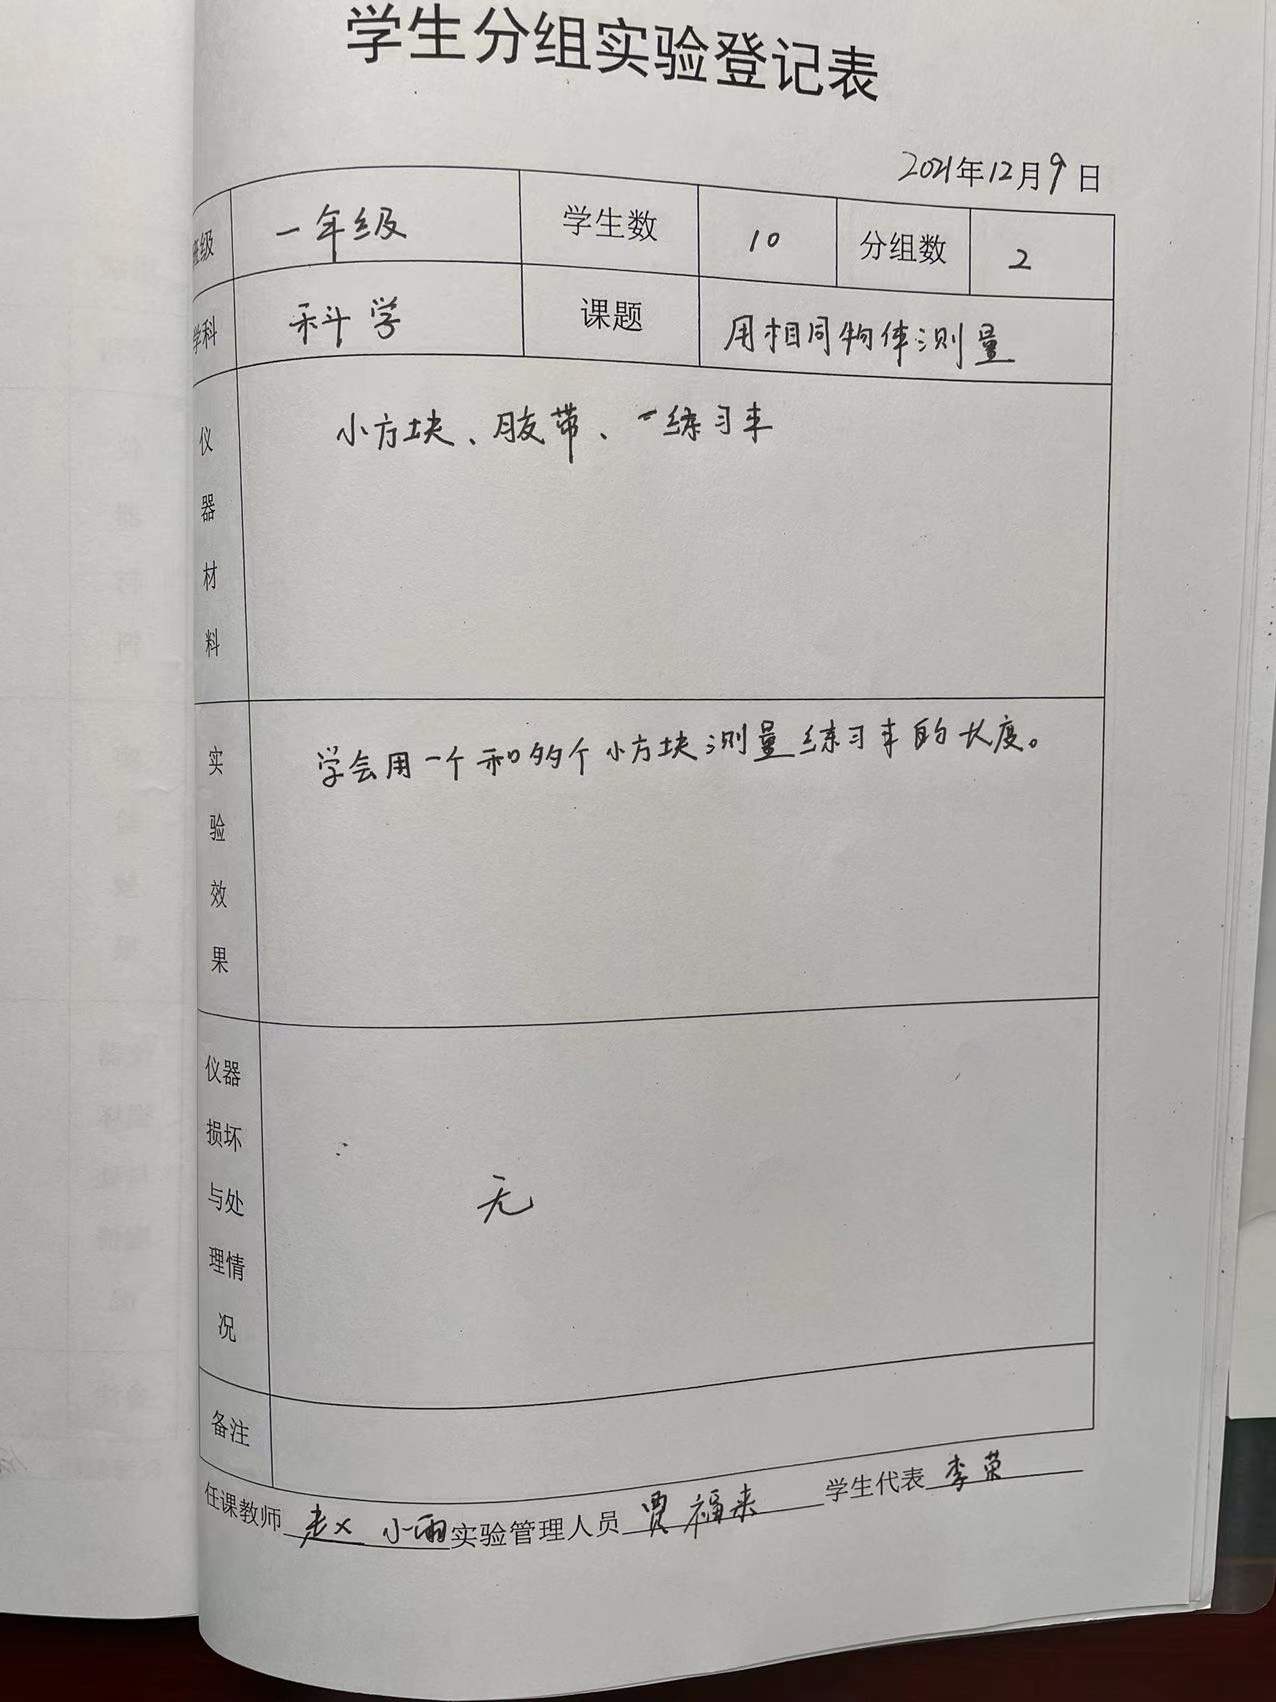 学生分组实验登记表
2021年12月9日
班级 一年级 学生数 10 分组数 2
学科 科学 课题 用相同物体测量
仪器材料 小方块、胶带、练习本
实验效果 学会用一个和多个小方块测量练习本的长度。
仪器
损坏
与处 无
理情
况
备注
任课教师 赵 小雨 实验管理人员 贾福来 学生代表 李荣